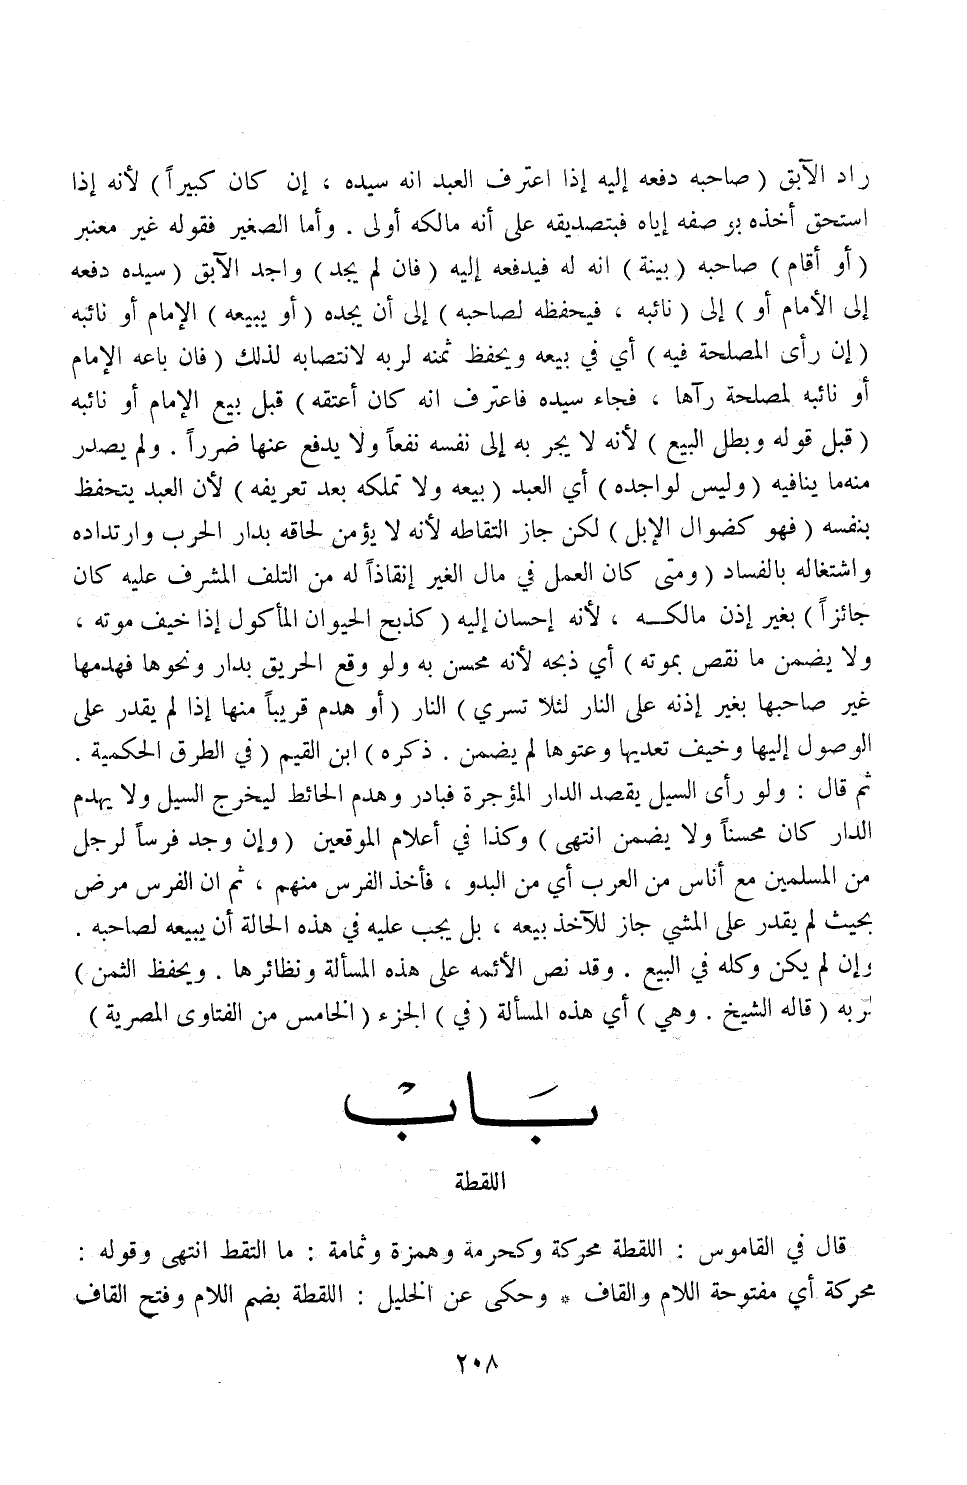 راد الآبق ( صاحبه دفعه إليه إذا اعترف العبد انه سيده ، إن كان كبيراً ) لأنه إذا
استحق أخذه بوصفه إياه فبتصديقه على أنه مالكه أولى . وأما الصغير فقوله غير معتبر
( أو أقام ) صاحبه ( بينة ) انه له فيدفعه إليه ( فان لم يجد ) واجد الآبق ( سيده دفعه
إلى الأمام أو ) إلى ( نائبه ، فيحفظه لصاحبه ) إلى أن يجده ( أو يبيعه ) الإمام أو نائبه
( إن رأى المصلحة فيه ) أي في بيعه ويحفظ ثمنه لربه لانتصابه لذلك ( فان باعه الإمام
أو نائبه لمصلحة رآها ، فجاء سيده فاعترف انه كان أعتقه ) قبل بيع الإمام أو نائبه
( قبل قوله وبطل البيع ) لأنه لا يجر به إلى نفسه نفعاً ولا يدفع عنها ضرراً . ولم يصدر
منه ما ينافيه ( وليس لواجده ) أي العبد ( بيعه ولا تملكه بعد تعريفه ) لأن العبد يتحفظ
بنفسه ( فهو كضوال الإبل ) لكن جاز التقاطه لأنه لا يؤمن لحاقه بدار الحرب وارتداده
واشتغاله بالفساد ( ومتى كان العمل في مال الغير إنقاذاً له من التلف المشرف عليه كان
جائزاً ) بغير إذن مالكـــه ، لأنه إحسان إليه ( كذبح الحيوان المأكول إذا خيف موته ،
ولا يضمن ما نقص بموته ) أي ذبحه لأنه محسن به ولو وقع الحريق بدار ونحوها فهدمها
غير صاحبها بغير إذنه على النار لئلا تسري ) النار ( أو هدم قريباً منها إذا لم يقدر على
الوصول إليها وخيف تعديها وعتوها لم يضمن . ذكره ) ابن القيم ( في الطرق الحكمية .
ثم قال : ولو رأى السيل يقصد الدار المؤجرة فبادر وهدم الحائط ليخرج السيل ولا يهدم
الدار كان محسناً ولا يضمن انتهى ) وكذا في أعلام الموقعين ( وإن وجد فرساً لرجل
من المسلمين مع أناس من العرب أي من البدو ، فأخذ الفرس منهم ، ثم ان الفرس مرض
بحيث لم يقدر على المشي جاز للآخذ بيعه ، بل يجب عليه في هذه الحالة أن يبيعه لصاحبه .
وإن لم يكن وكله في البيع . وقد نص الأئمه على هذه المسألة ونظائرها . ويحفظ الثمن )
لربه ( قاله الشيخ . وهي ) أي هذه المسألة ( في ) الجزء ( الخامس من الفتاوى المصرية )
بَابْ
اللقطة
قال في القاموس : اللقطة محركة وكحرمة وهمزة وثمامة : ما التقط انتهى وقوله :
محركة أي مفتوحة اللام والقاف * وحكى عن الخليل : اللقطة بضم اللام وفتح القاف
٢٠٨